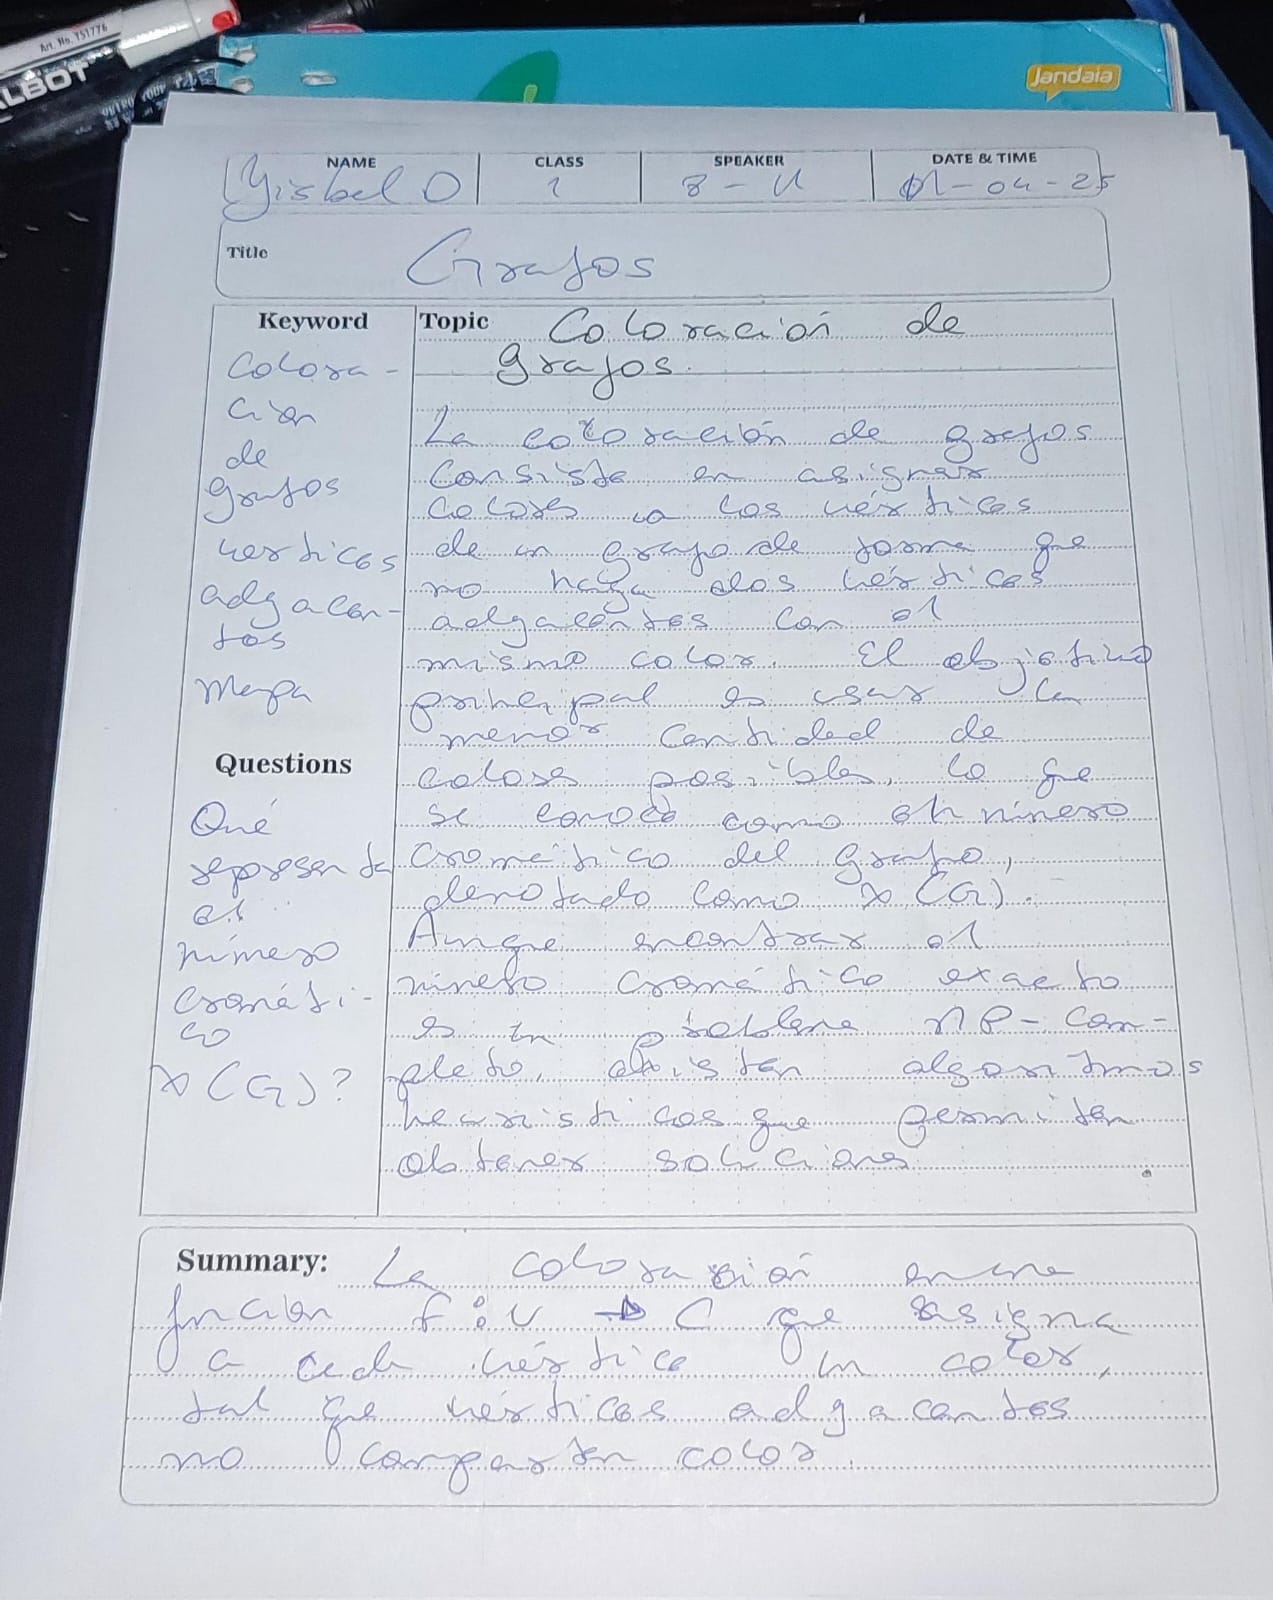 Art. No. YS1776
LBOT
Jandaia
NAME
CLASS
SPEAKER
DATE & TIME
Yisbel O
1
8 - U
01-04-25
Title
Grafos
Keyword
Colora-
ción
de
grafos
vertices
adgacen-
tes
Mapa
Questions
Qué
representa
el
número
cromáti-
co
x (G)?
Topic Coloración de
grafos.
La coloración de grafos
Consiste en asignar
colores a los vértices
de un grafo de forma que
no haya dos vértices
adgacentes con el
mismo color. El objetivo
principal es usar la
menor cantidad de
colores posibles, lo que
se conoce como el número
Cromático del grafo,
denotado como x (G).
Aunque encontrar el
número cromático exacto
es un problema NP-com-
pleto, existen algoritmos
heurísticos que permiten
obtener soluciones
Summary: La coloración en una
función f: V → C que asigna
a cada vértice un color,
tal que vértices adgacentes
no comparten color.